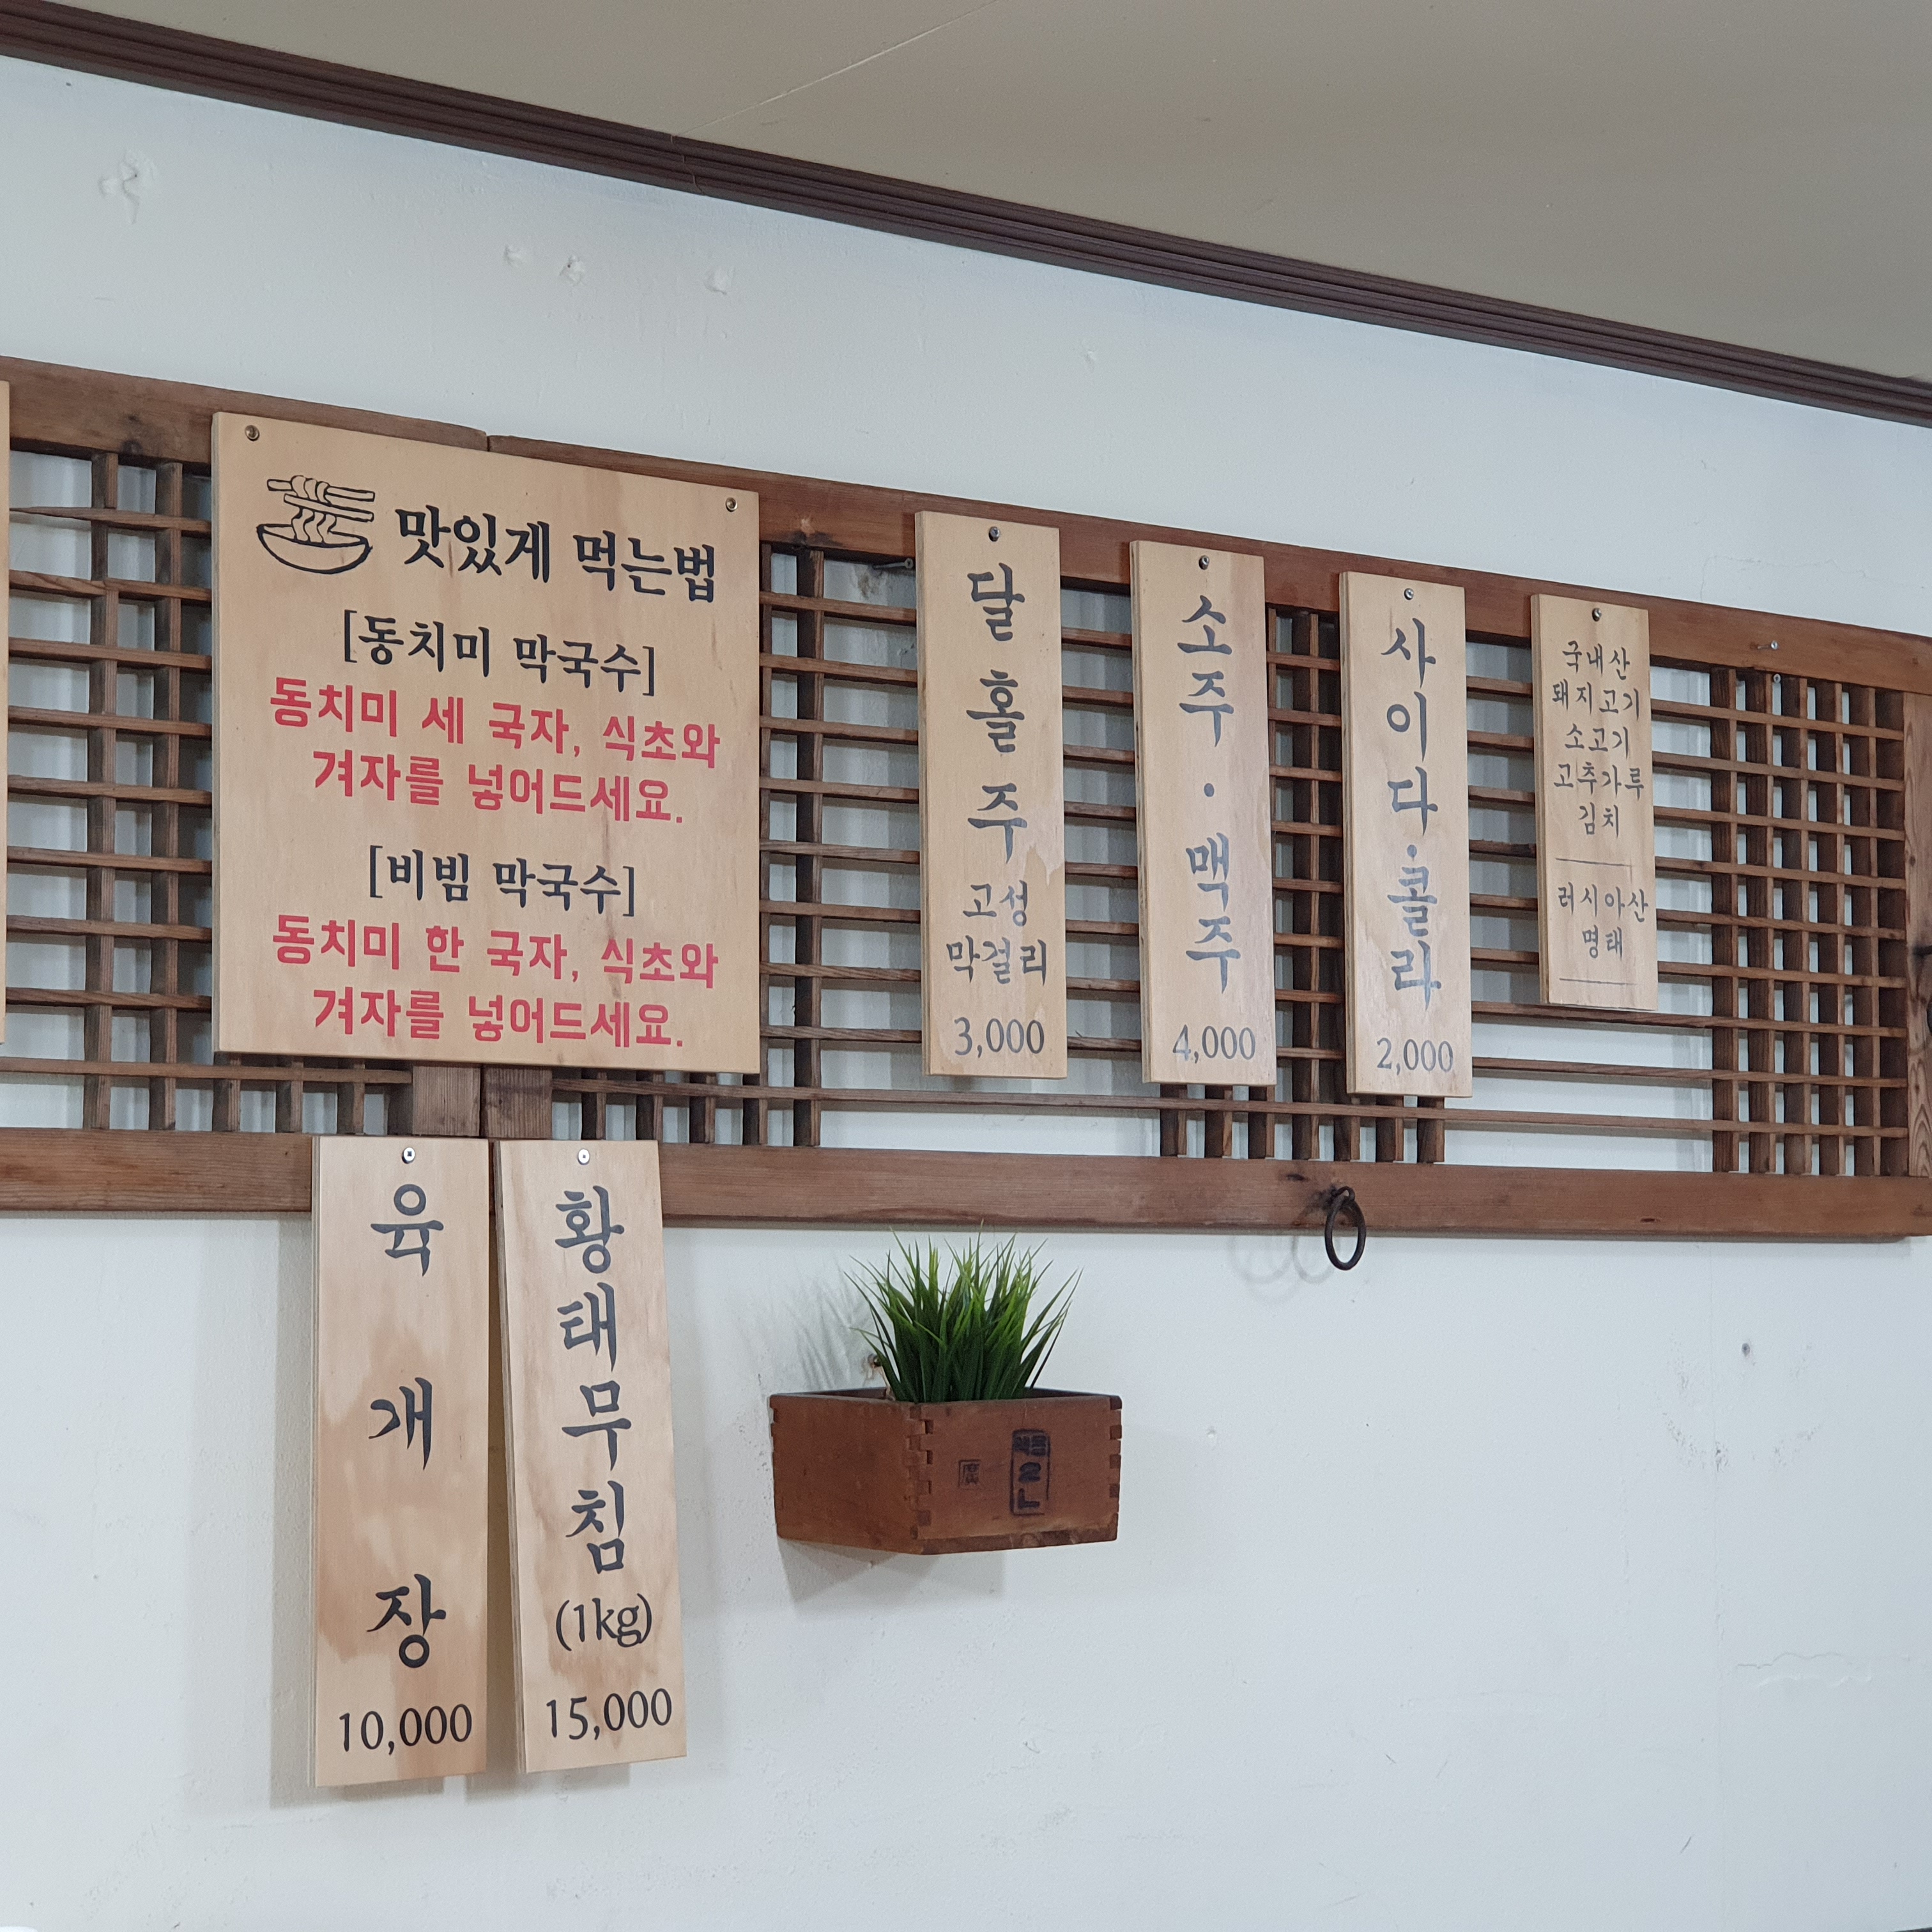 맛있게 먹는법
[동치미 막국수]
동치미 세 국자, 식초와
겨자를 넣어드세요.
[비빔 막국수]
동치미 한 국자, 식초와
겨자를 넣어드세요.
달홀주
고성
막걸리
3,000
소주·맥주
4,000
사이다·콜라
2,000
국내산
돼지고기
소고기
고추가루
김치
러시아산
명태
육개장
10,000
황태무침
(1kg)
15,000
2L